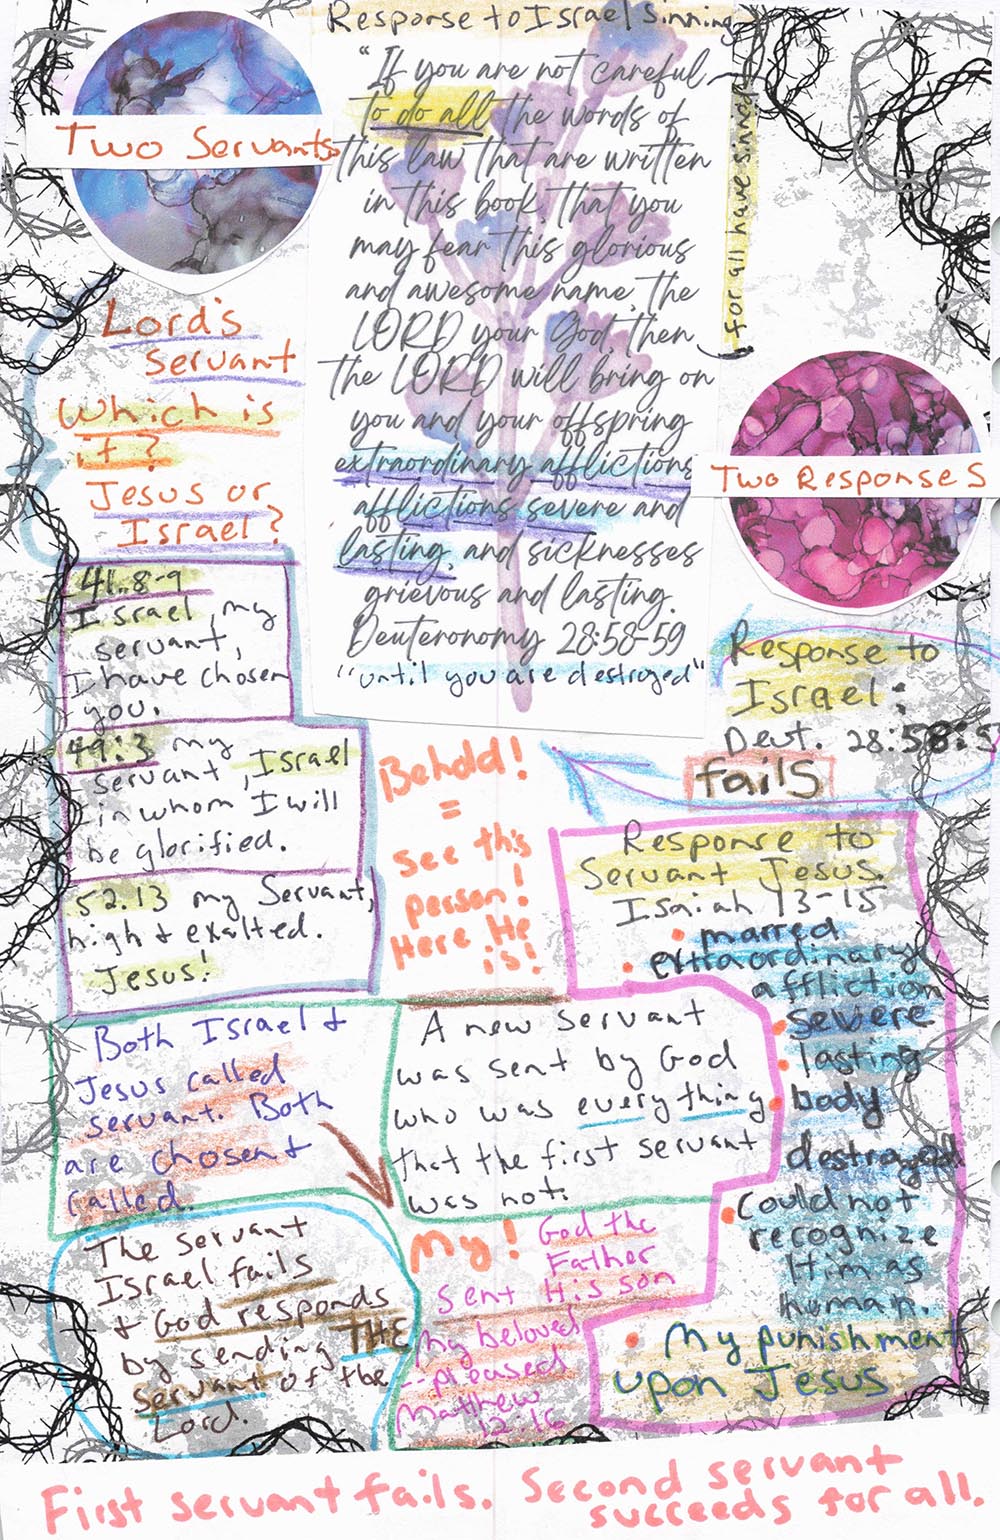 Response to Israel Sinning
"If you are not careful
to do all the words of
this law that are written
in this book, that you
may fear this glorious
and awesome name, the
LORD your God, then
the LORD will bring on
you and your offspring
extraordinary afflictions
afflictions severe and
lasting, and sicknesses
grievous and lasting.
Deuteronomy 28:58-59
"until you are destroyed"
for all have sinned
Two Servants
Lord's
servant
Which is
it?
Jesus or
Israel?
41:8-9
Israel, my
servant,
I have chosen
you.
49:3 my
servant, Israel
in whom I will
be glorified.
52.13 my Servant,
high & exalted.
Jesus!
Behold!
=
See this
person!
Here He
is!
Two Responses
Response to
Israel:
Deut. 28:58-5
fails
Response to
Servant Jesus.
Isaiah 13-15
marred
extraordinary
affliction
severe
lasting
body
destroyed
Could not
recognize
Him as
human.
My punishment
upon Jesus
Both Israel &
Jesus called
servant. Both
are chosen &
called.
A new servant
was sent by God
who was everything
that the first servant
was not.
The servant
Israel fails
& God responds
by sending THE
servant of the
Lord.
My! God the
Father
sent His son
my beloved
-- pleased
Matthew
12:16
First servant fails. Second servant
succeeds for all.